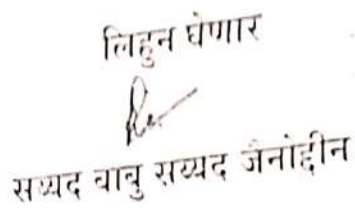 लिहुन घेणार
सय्यद बाबु सय्यद जैनोद्दीन